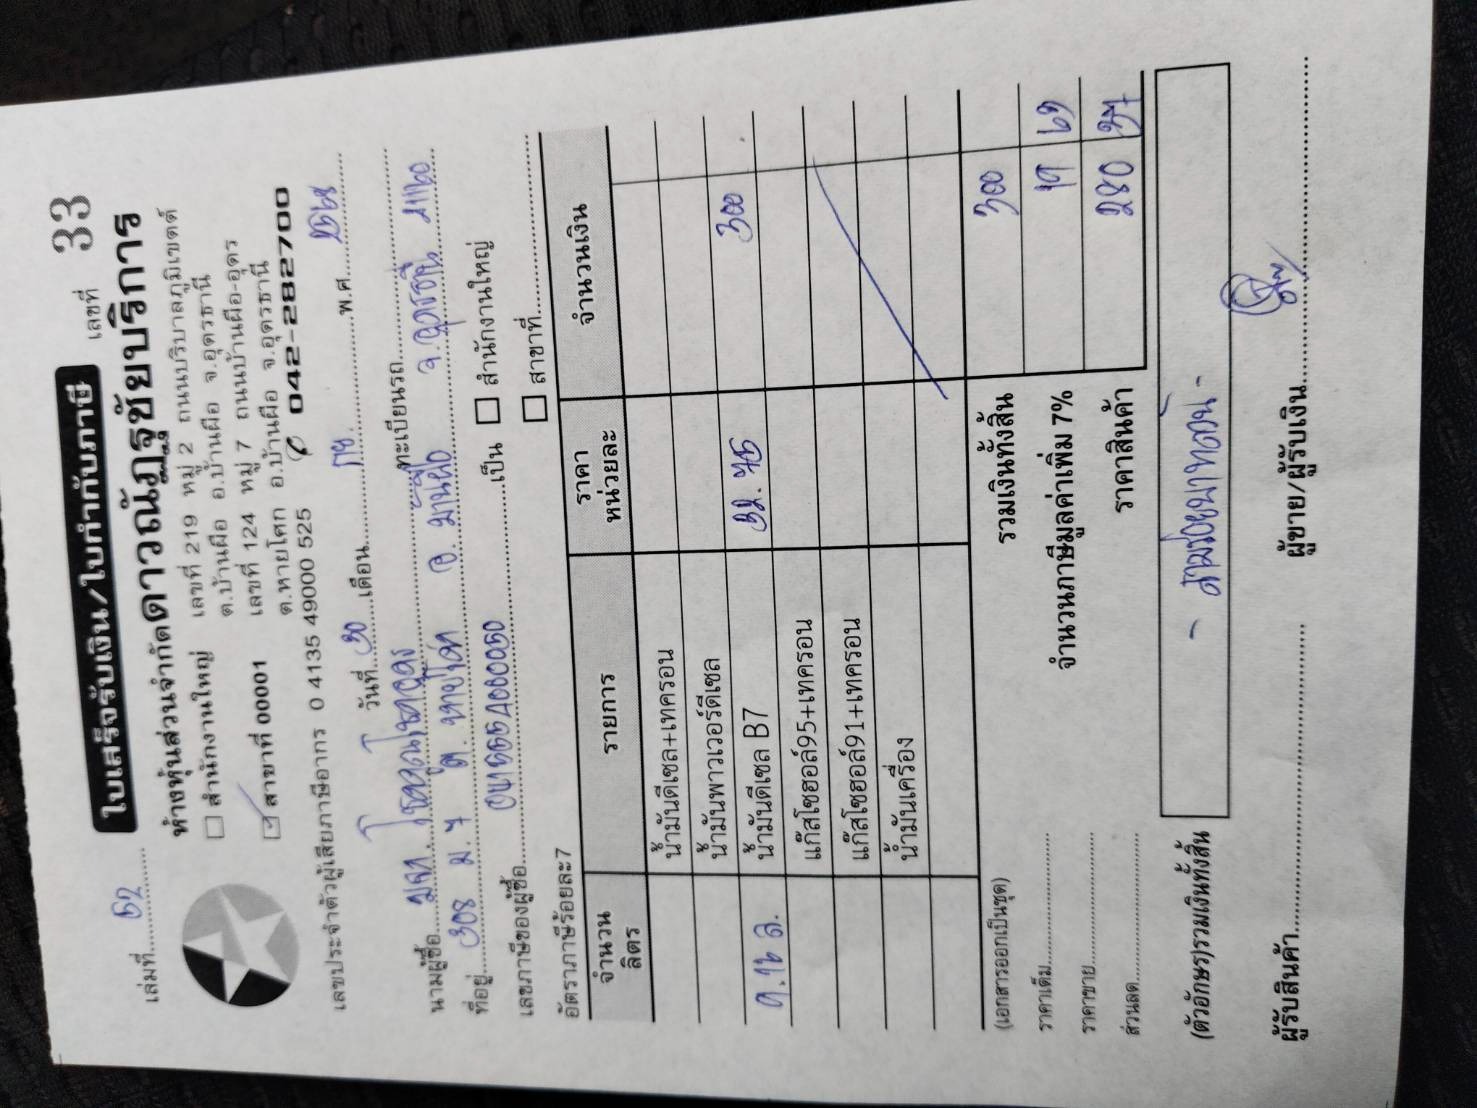 เล่มที่ 52 ใบเสร็จรับเงิน/ใบกำกับภาษี เลขที่ 33
ห้างหุ้นส่วนจำกัดดาวณัฏฐชัยบริการ
สำนักงานใหญ่ เลขที่ 219 หมู่ 2 ถนนบริบาลภูมิเขตต์
ต.บ้านผือ อ.บ้านผือ จ.อุดรธานี
สาขาที่ 00001 เลขที่ 124 หมู่ 7 ถนนบ้านผือ-อุดร
ต.หายโศก อ.บ้านผือ จ.อุดรธานี
เลขประจำตัวผู้เสียภาษีอากร 0 4135 49000 525 042-282700
วันที่ 30 เดือน กย. พ.ศ. 2568
นามผู้ซื้อ ทะเบียนรถ
ที่อยู่ 308 ม. 7 ต. หายโศก อ. บ้านผือ จ. อุดรธานี 41160
เลขภาษีของผู้ซื้อ เป็น สำนักงานใหญ่
อัตราภาษีร้อยละ7 สาขาที่
จำนวนลิตร รายการ ราคาหน่วยละ จำนวนเงิน
น้ำมันดีเซล+เทครอน
น้ำมันพาวเวอร์ดีเซล
9.16 ล. น้ำมันดีเซล B7 32.75 300
แก๊สโซฮอล์95+เทครอน
แก๊สโซฮอล์91+เทครอน
น้ำมันเครื่อง
(เอกสารออกเป็นชุด) รวมเงินทั้งสิ้น 300
ราคาเต็ม จำนวนภาษีมูลค่าเพิ่ม 7% 19 63
ราคาขาย ราคาสินค้า 280 37
ส่วนลด
(ตัวอักษร)รวมเงินทั้งสิ้น - สามร้อยบาทถ้วน -
ผู้รับสินค้า ผู้ขาย/ผู้รับเงิน